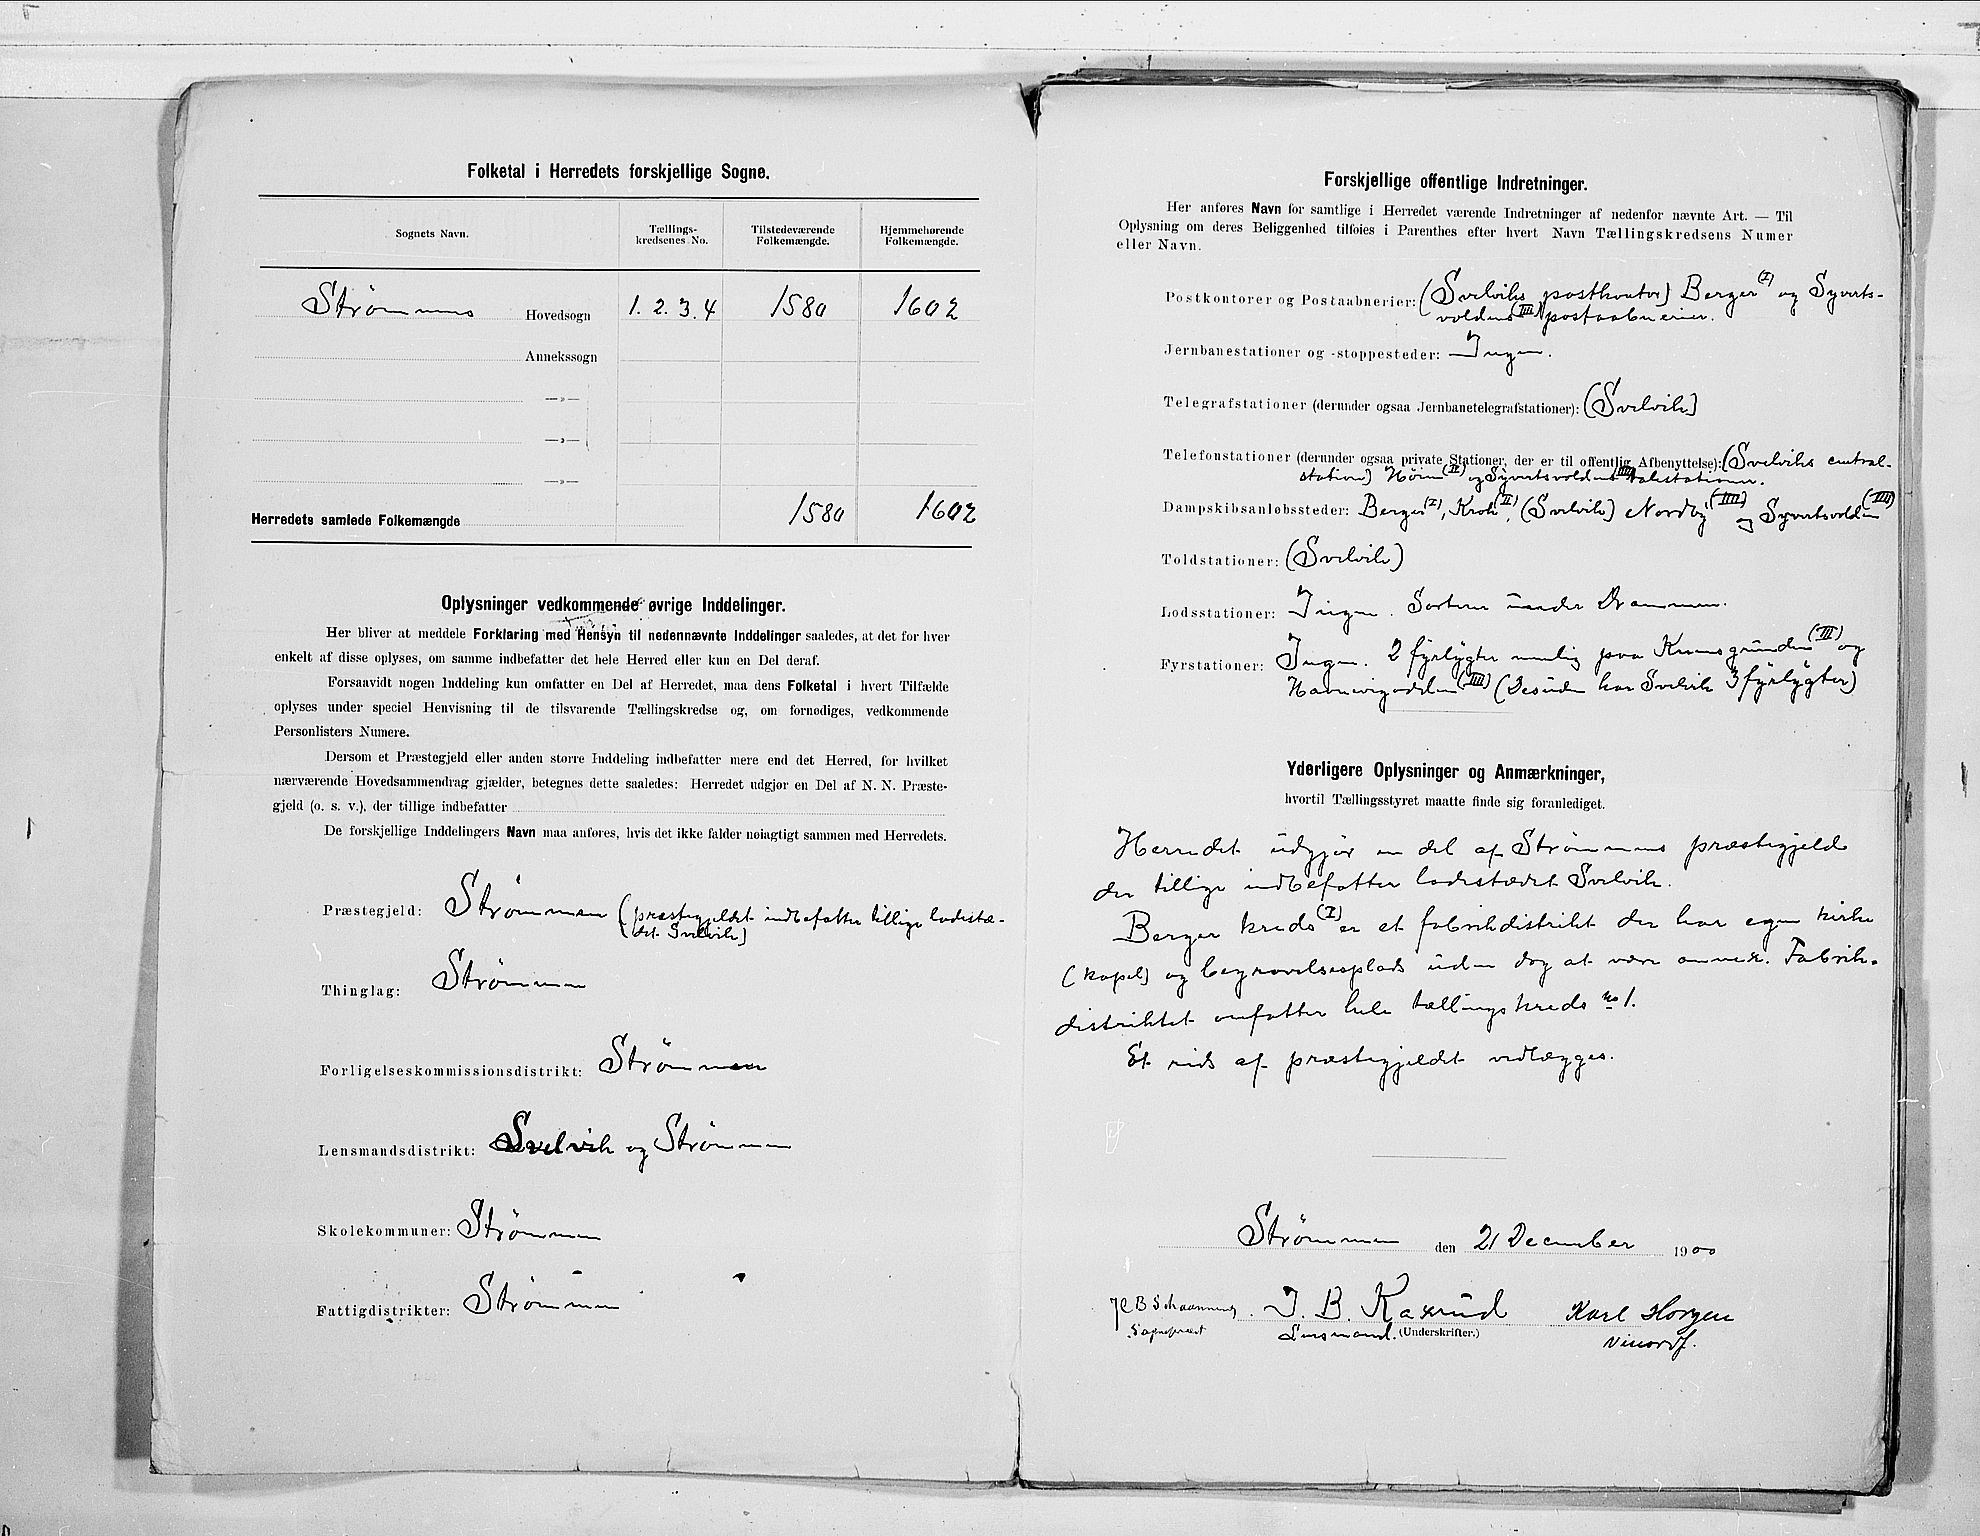 Folketal i Herredets forskjellige Sogne.
Sognets Navn.
Tællings-
kredsenes No.
Tilstedeværende
Folkemængde.
Hjemmehørende
Folkemængde.
Strømmens Hovedsogn 1. 2. 3. 4 1580 1602
Annekssogn
—»—
—»—
—»—
Herredets samlede Folkemængde 1580 1602
Oplysninger vedkommende øvrige Inddelinger.
Her bliver at meddele Forklaring med Hensyn til nedennævnte Inddelinger saaledes, at det for hver
enkelt af disse oplyses, om samme indbefatter det hele Herred eller kun en Del deraf.
Forsaavidt nogen Inddeling kun omfatter en Del af Herredet, maa dens Folketal i hvert Tilfælde
oplyses under speciel Henvisning til de tilsvarende Tællingskredse og, om fornødiges, vedkommende
Personlisters Numere.
Dersom et Præstegjeld eller anden større Inddeling indbefatter mere end det Herred, for hvilket
nærværende Hovedsammendrag gjælder, betegnes dette saaledes: Herredet udgjør en Del af N. N. Præste-
gjeld (o. s. v.), der tillige indbefatter
De forskjellige Inddelingers Navn maa anføres, hvis det ikke falder nøiagtigt sammen med Herredets.
Præstegjeld: Strømmen (præstegjeldet indbefatter tillige ladestæ-
det Svelvik)
Thinglag: Strømmen
Forligelseskommissionsdistrikt: Strømmen
Lensmandsdistrikt: Svelvik og Strømmen
Skolekommuner: Strømmen
Fattigdistrikter: Strømmen
Forskjellige offentlige Indretninger.
Her anføres Navn for samtlige i Herredet værende Indretninger af nedenfor nævnte Art. — Til
Oplysning om deres Beliggenhed tilføies i Parenthes efter hvert Navn Tællingskredsens Numer
eller Navn.
Postkontorer og Postaabnerier: (Svelviks postkontor) Berger (I) og Syverts-
voldens (IIII) postaabnerier.
Jernbanestationer og -stoppesteder: Ingen.
Telegrafstationer (derunder ogsaa Jernbanetelegrafstationer): (Svelvik)
Telefonstationer (derunder ogsaa private Stationer, der er til offentlig Afbenyttelse): (Svelviks central-
station) (II) og Syvertsvoldens (IIII) talestationer.
Dampskibsanløbssteder: Berger (I), Krok (II), (Svelvik) Nordby (IIII) og Syvertsvolden (IIII)
Toldstationer: (Svelvik)
Lodsstationer: Ingen. Sorterer under Drammen.
Fyrstationer: Ingen. 2 fyrlygter nemlig paa (III) og
(IIII) (Desuden har Svelvik 3 fyrlygter)
Yderligere Oplysninger og Anmærkninger,
hvortil Tællingsstyret maatte finde sig foranlediget.
Herredet udgjør en del af Strømmens præstegjeld
der tillige indbefatter ladestædet Svelvik.
Berger kreds (I) er et fabrikdistrikt der har egen kirke
(kapel) og begravelsesplads uden dog at være annex. Fabrik-
distriktet omfatter hele tællingskreds no 1.
Et rids af præstegjeldet vedlægges.
Strømmen den 21 December 1900
H B Schaanning J. B. Kaxrud Karl Horgen
Sogneprest Lensmand. (Underskrifter.) viseordf.